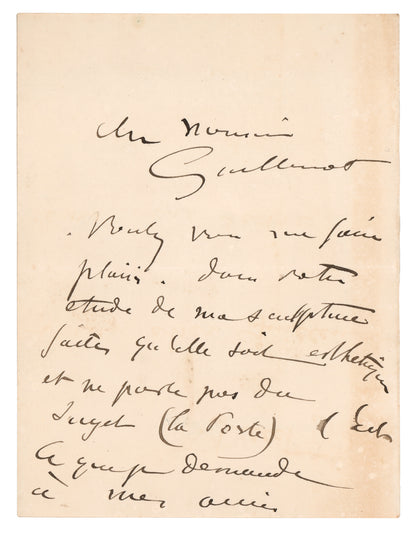 Cher Monsieur
Guillemot
Voulez vous me faire
plaisir. dans votre
étude de ma sculpture
faites qu'elle soit esthetique
et ne parle pas du
sujet (la Porte) C'est
ce que je demande
à mes amis